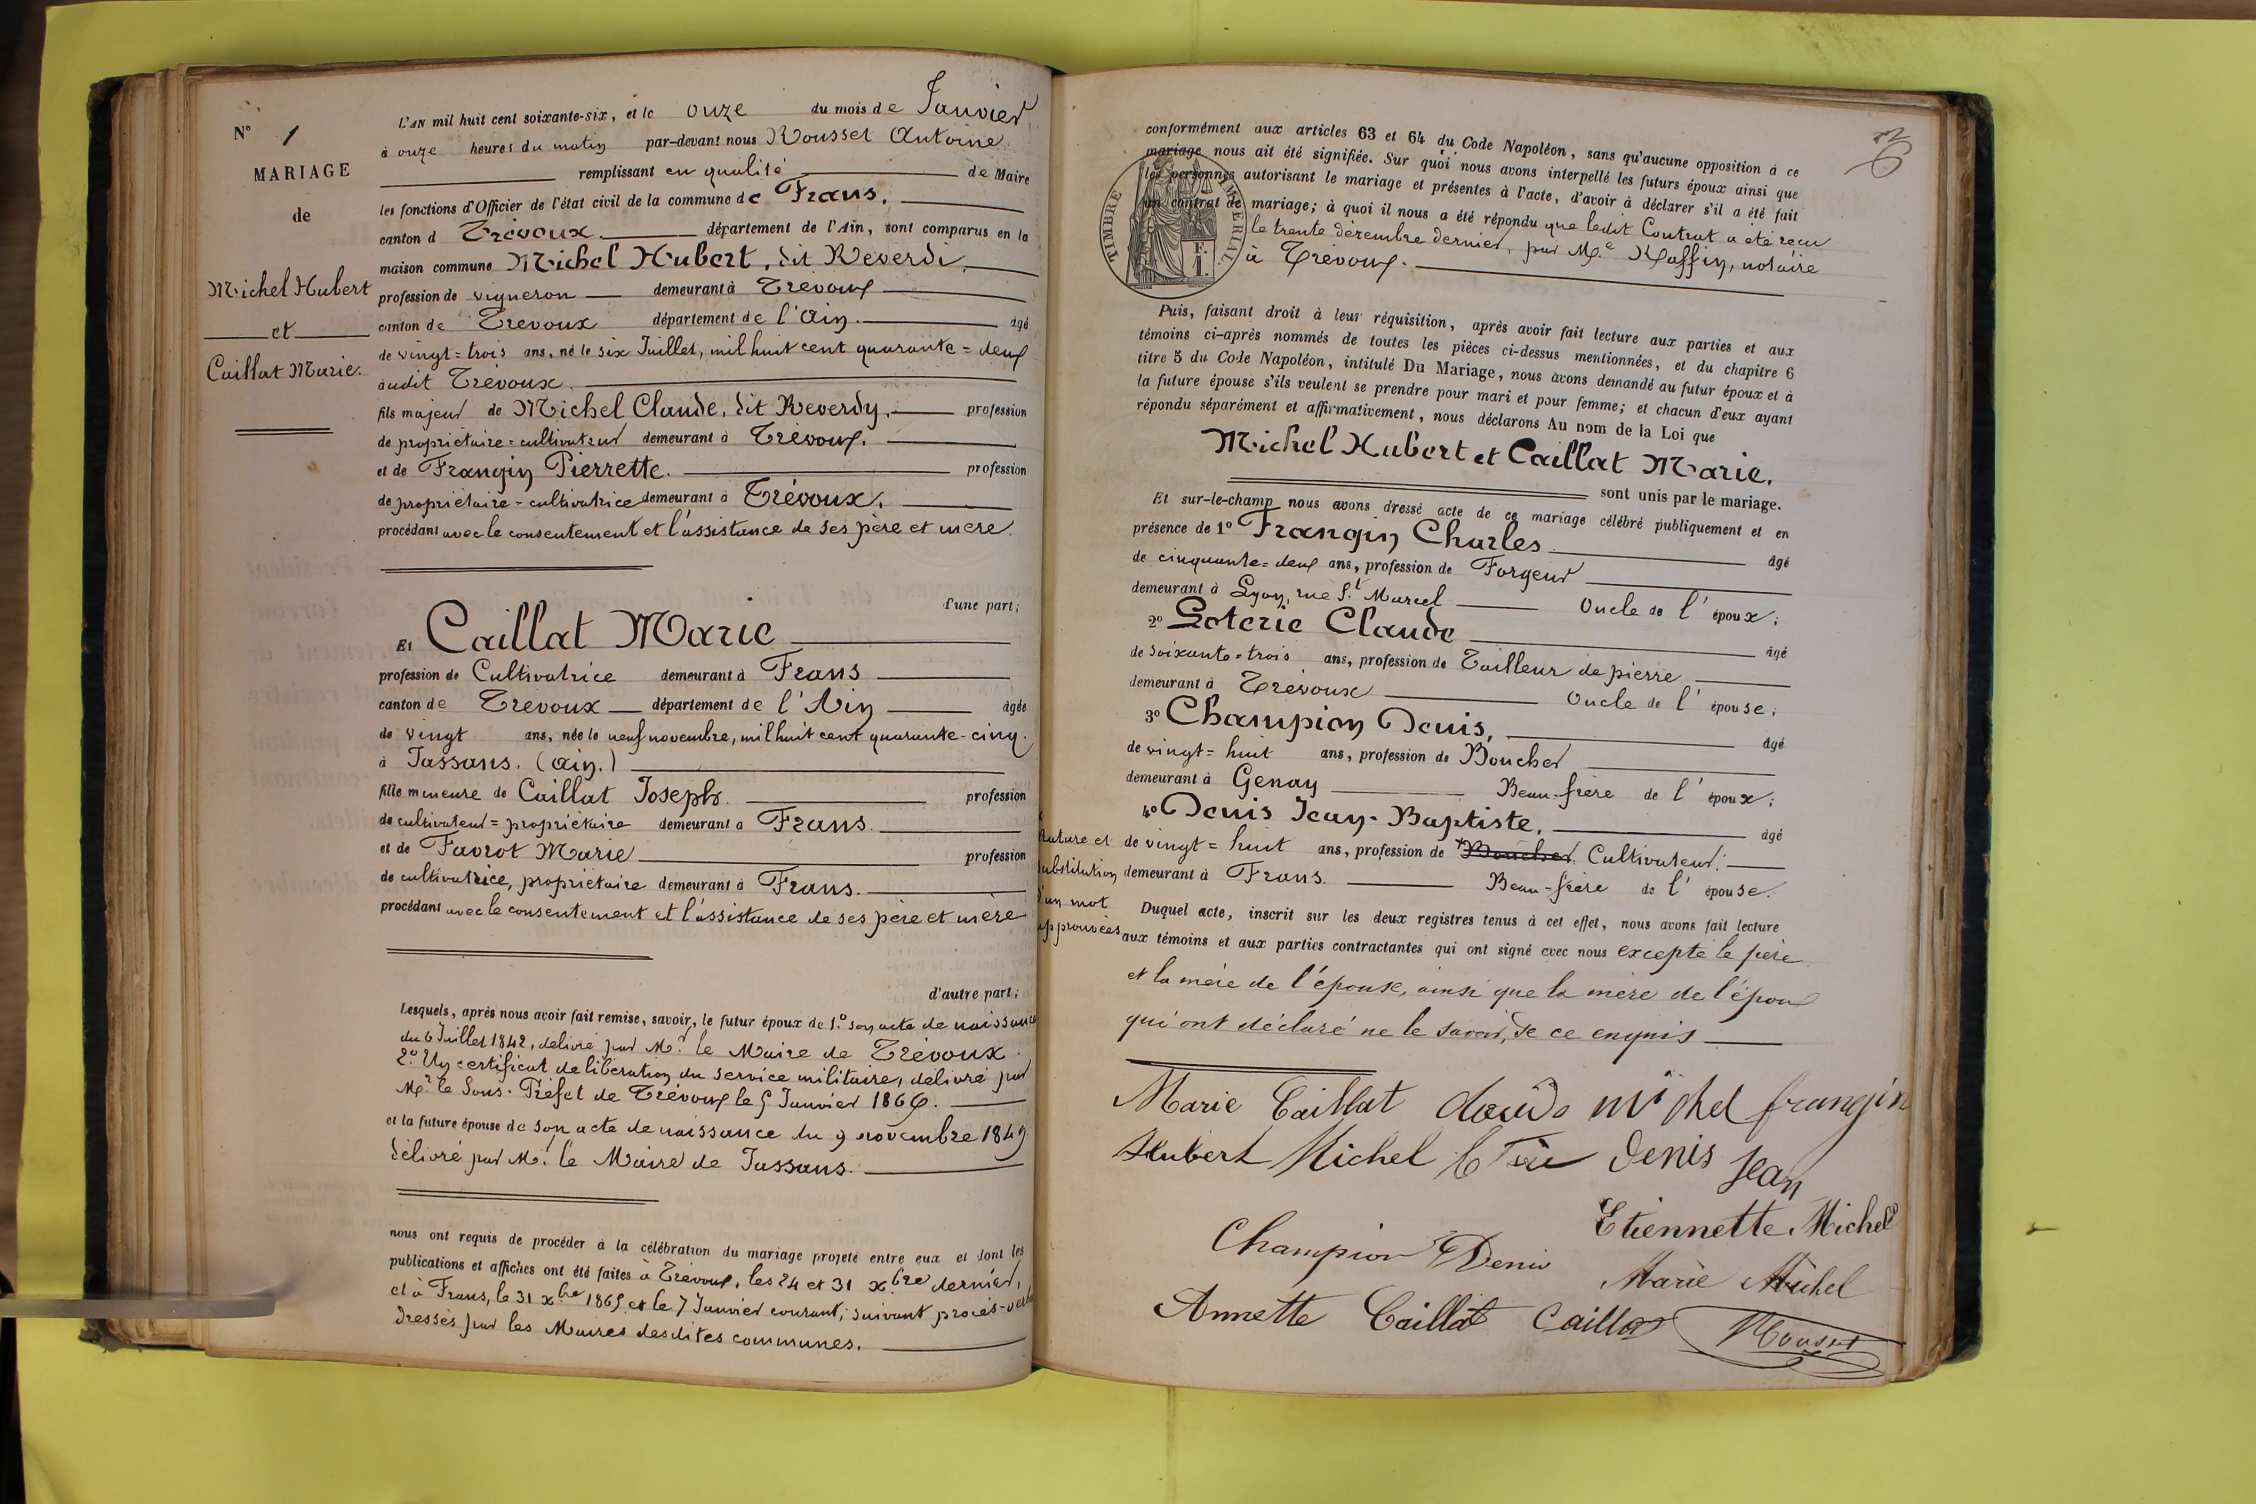 N° 1
MARIAGE
de
Michel Hubert
et
Caillat Marie.
L'AN mil huit cent soixante-six, et le onze du mois de Janvier
à onze heures du matin par-devant nous Rousset Antoine
remplissant en qualité de Maire
les fonctions d'Officier de l'état civil de la commune de Frans,
canton d Trévoux département de l'Ain, sont comparus en la
maison commune Michel Hubert, dit Reverdi,
profession de vigneron demeurant à Trévoux
canton de Trévoux département de l'Ain. âgé
de vingt=trois ans, né le six Juillet, mil huit cent quarante=deux
audit Trévoux.
fils majeur de Michel Claude, dit Reverdy, profession
de propriétaire=cultivateur demeurant à Trévoux.
et de Frangin Pierrette. profession
de propriétaire=cultivatrice demeurant à Trévoux,
procédant avec le consentement et l'assistance de ses père et mère.
d'une part;
Et Caillat Marie
profession de Cultivatrice demeurant à Frans
canton de Trévoux département de l'Ain âgée
de vingt ans, née le neuf novembre, mil huit cent quarante-cinq.
à Jassans. (Ain.)
fille mineure de Caillat Joseph. profession
de cultivateur=propriétaire demeurant à Frans.
et de Favrot Marie profession
de cultivatrice, propriétaire demeurant à Frans.
procédant avec le consentement et l'assistance de ses père et mère
d'autre part;
Lesquels, après nous avoir fait remise, savoir, le futur époux de 1.° son acte de naissance
du 6 Juillet 1842, délivré par Mr. le Maire de Trévoux.
2.° Un certificat de libération du service militaire, délivré par
Mr. le Sous-Préfet de Trévoux le 5 Janvier 1866.
et la future épouse de son acte de naissance du 9 novembre 1845
délivré par Mr. le Maire de Jassans.
nous ont requis de procéder à la célébration du mariage projeté entre eux et dont les
publications et affiches ont été faites à Trévoux, les 24 et 31 xbre dernier,
et à Frans, le 31 xbre 1865 et le 7 Janvier courant; suivant procès-verb
dressés par les Maires desdites communes.
conformément aux articles 63 et 64 du Code Napoléon, sans qu'aucune opposition à ce
mariage nous ait été signifiée. Sur quoi nous avons interpellé les futurs époux ainsi que
les personnes autorisant le mariage et présentes à l'acte, d'avoir à déclarer s'il a été fait
un contrat de mariage; à quoi il nous a été répondu que ledit Contrat a été reçu
le trente décembre dernier, par Me. Raffin, notaire
à Trévoux.
TIMBRE IMPÉRIAL
F.
1.
Puis, faisant droit à leur réquisition, après avoir fait lecture aux parties et aux
témoins ci-après nommés de toutes les pièces ci-dessus mentionnées, et du chapitre 6
titre 5 du Code Napoléon, intitulé Du Mariage, nous avons demandé au futur époux et à
la future épouse s'ils veulent se prendre pour mari et pour femme; et chacun d'eux ayant
répondu séparément et affirmativement, nous déclarons Au nom de la Loi que
Michel Hubert et Caillat Marie.
sont unis par le mariage.
Et sur-le-champ nous avons dressé acte de ce mariage célébré publiquement et en
présence de 1° Frangin Charles âgé
de cinquante=deux ans, profession de Forgeur
demeurant à Lyon, rue St. Marcel Oncle de l'époux;
2° Loterie Claude âgé
de soixante=trois ans, profession de Tailleur de pierre
demeurant à Trévoux Oncle de l'épouse;
3° Champion Denis, âgé
de vingt=huit ans, profession de Boucher
demeurant à Genay Beau-frère de l'époux;
4° Denis Jean-Baptiste, âgé
de vingt=huit ans, profession de Boucher. Cultivateur.
demeurant à Frans. Beau-frère de l'épouse.
Rature et
substitution
d'un mot
approuvées
Duquel acte, inscrit sur les deux registres tenus à cet effet, nous avons fait lecture
aux témoins et aux parties contractantes qui ont signé avec nous excepté le père
et la mère de l'épouse, ainsi que la mère de l'époux
qui ont déclaré ne le savoir, de ce enquis
Marie Caillat Michel frangin
Hubert Michel Denis Jean
Etiennette Michel
Champion Denis
Marie Michel
Annette Caillat Caillat Rousset